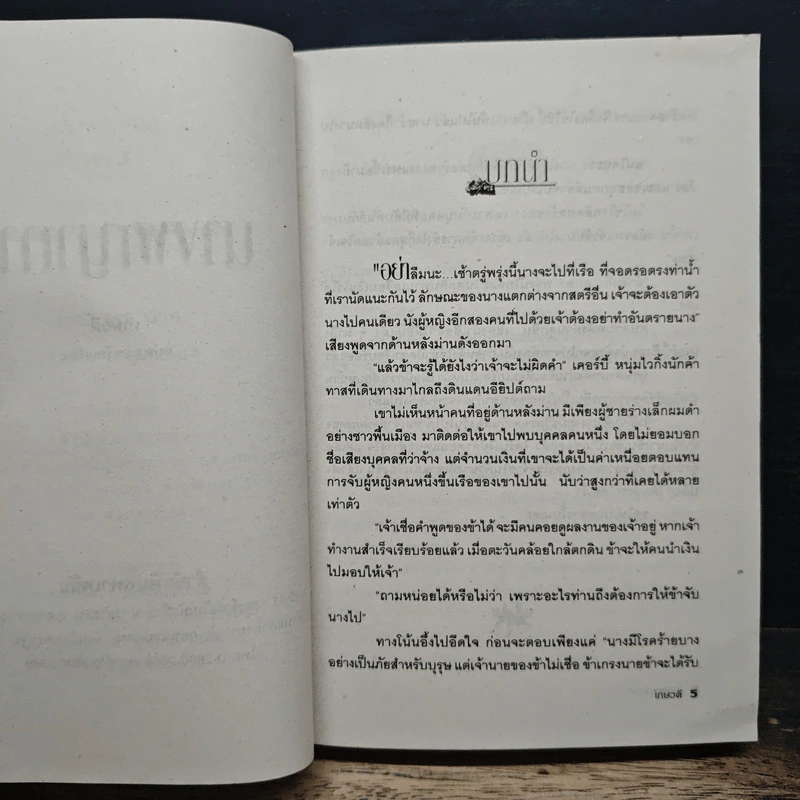 บทนำ
"อย่าลืมนะ...เช้าตรู่พรุ่งนี้นางจะไปที่เรือ ที่จอดรอตรงท่าน้ำ
ที่เรานัดแนะกันไว้ ลักษณะของนางแตกต่างจากสตรีอื่น เจ้าจะต้องเอาตัว
นางไปคนเดียว นังผู้หญิงอีกสองคนที่ไปด้วยเจ้าต้องอย่าทำอันตรายนาง"
เสียงพูดจากด้านหลังม่านดังออกมา
"แล้วข้าจะรู้ได้ยังไงว่าเจ้าจะไม่ผิดคำ" เคอร์บี้ หนุ่มไวกิ้งนักค้า
ทาสที่เดินทางมาไกลถึงดินแดนอียิปต์ถาม
เขาไม่เห็นหน้าคนที่อยู่ด้านหลังม่าน มีเพียงผู้ชายร่างเล็กผมดำ
อย่างชาวพื้นเมือง มาติดต่อให้เขาไปพบบุคคลคนหนึ่ง โดยไม่ยอมบอก
ชื่อเสียงบุคคลที่ว่าจ้าง แต่จำนวนเงินที่เขาจะได้เป็นค่าเหนื่อยตอบแทน
การจับผู้หญิงคนหนึ่งขึ้นเรือของเขาไปนั้น นับว่าสูงกว่าที่เคยได้หลาย
เท่าตัว
"เจ้าเชื่อคำพูดของข้าได้ จะมีคนคอยดูผลงานของเจ้าอยู่ หากเจ้า
ทำงานสำเร็จเรียบร้อยแล้ว เมื่อตะวันคล้อยใกล้ตกดิน ข้าจะให้คนนำเงิน
ไปมอบให้เจ้า"
"ถามหน่อยได้หรือไม่ว่า เพราะอะไรท่านถึงต้องการให้ข้าจับ
นางไป"
ทางโน้นอึ้งไปอึดใจ ก่อนจะตอบเพียงแค่ "นางมีโรคร้ายบาง
อย่างเป็นภัยสำหรับบุรุษ แต่เจ้านายของข้าไม่เชื่อ ข้าเกรงนายข้าจะได้รับ
เกษวดี 5